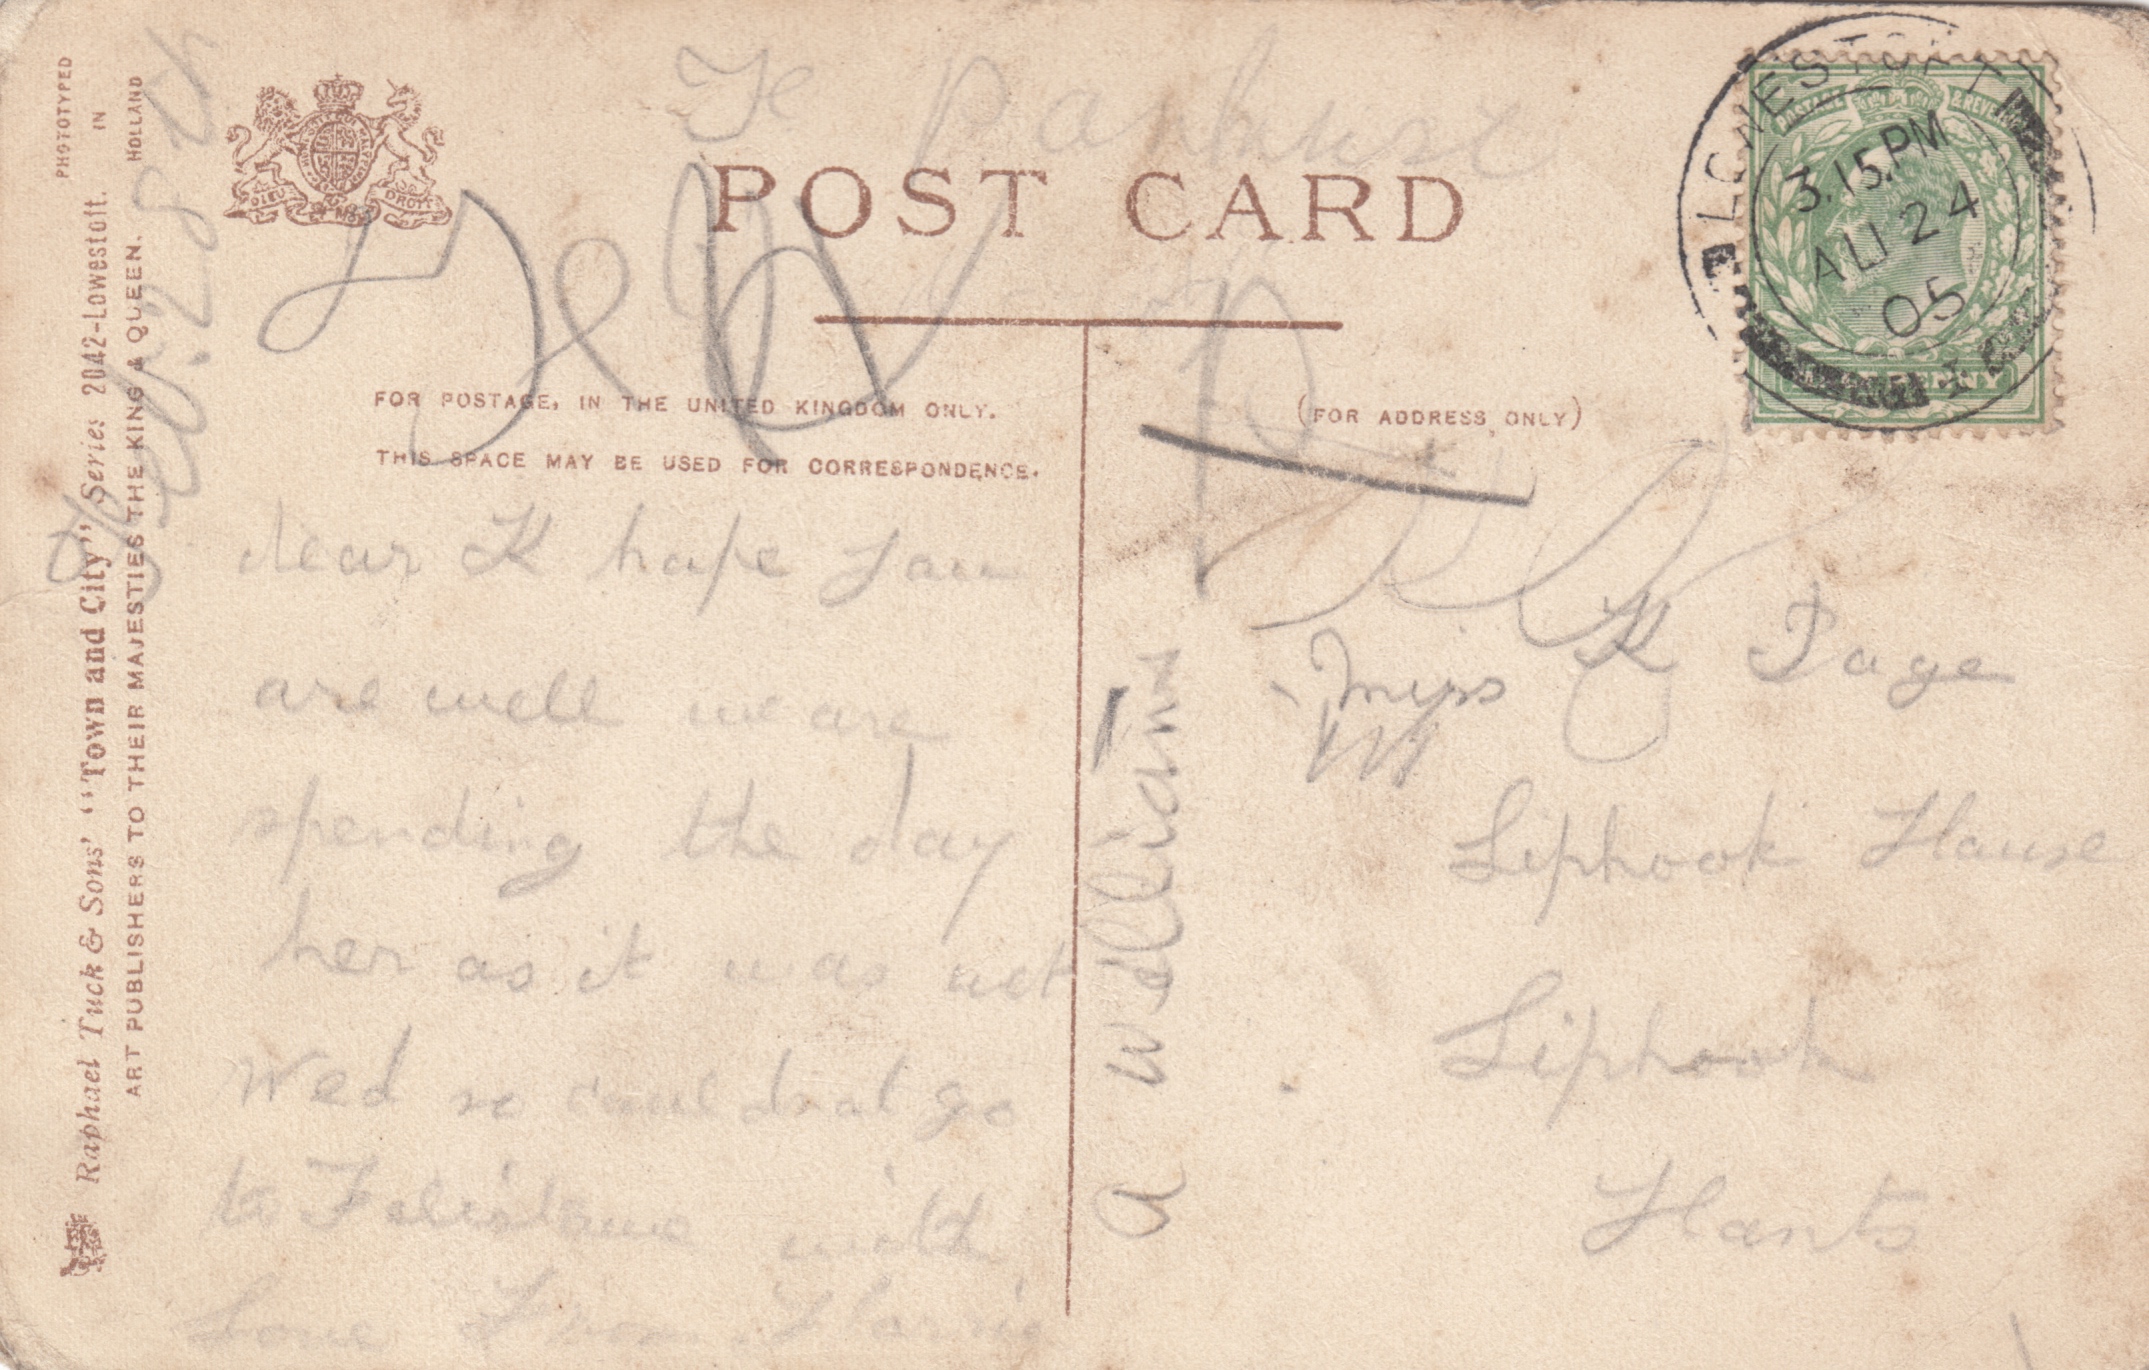 PHOTOTYPED IN HOLLAND
Raphael Tuck & Sons' "Town and City" Series 2042-Lowestoft.
ART PUBLISHERS TO THEIR MAJESTIES THE KING & QUEEN.
28th
DIEU ET MON DROIT
POST CARD
FOR POSTAGE, IN THE UNITED KINGDOM ONLY.
THIS SPACE MAY BE USED FOR CORRESPONDENCE.
(FOR ADDRESS ONLY)
POSTAGE & REVENUE
LOWESTOFT
3.15.PM
AU 24
05
dear K hope you
are well we are
spending the day
her as it was wet
Wed so could not go
to with
Love From
a william
Miss K Page
Liphook House
Liphook
Hants